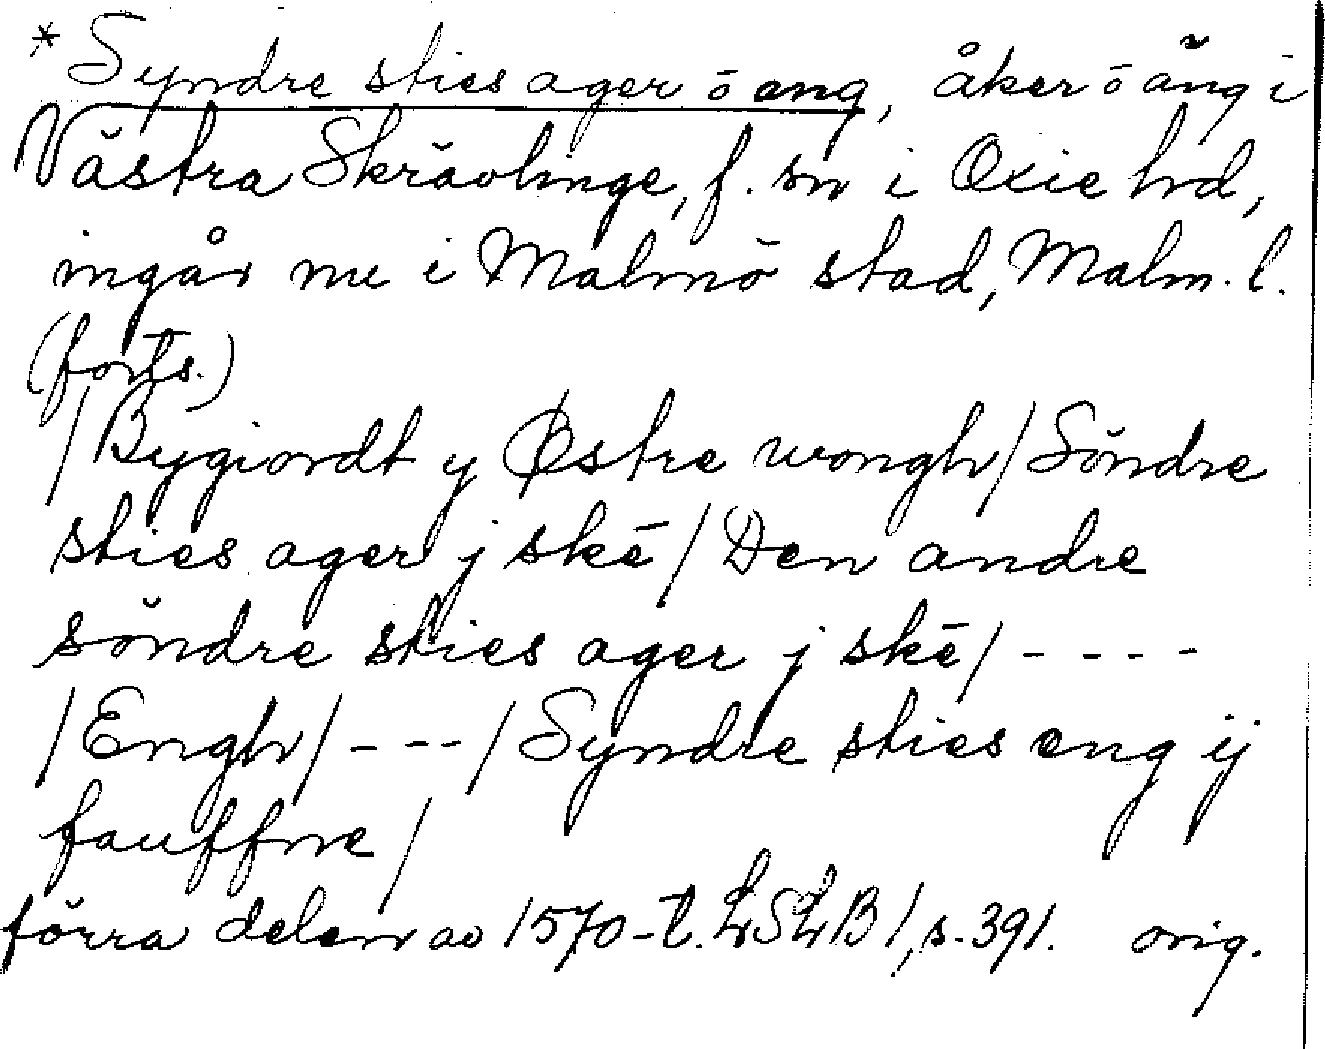 *Syndre sties ager ō eng, åker ō äng i
Västra Skrävlinge, f. sn i Oxie hd,
ingår nu i Malmö stad, Malm. l.
(forts.)
/Bygiordt y Østre wongh/Söndre
sties ager j skē/Den andre
söndre sties ager j skē/----
/Engh/---/Syndre sties eng ij
fauffne/
förra delen av 1570-t. LSLB1, s. 391. orig.